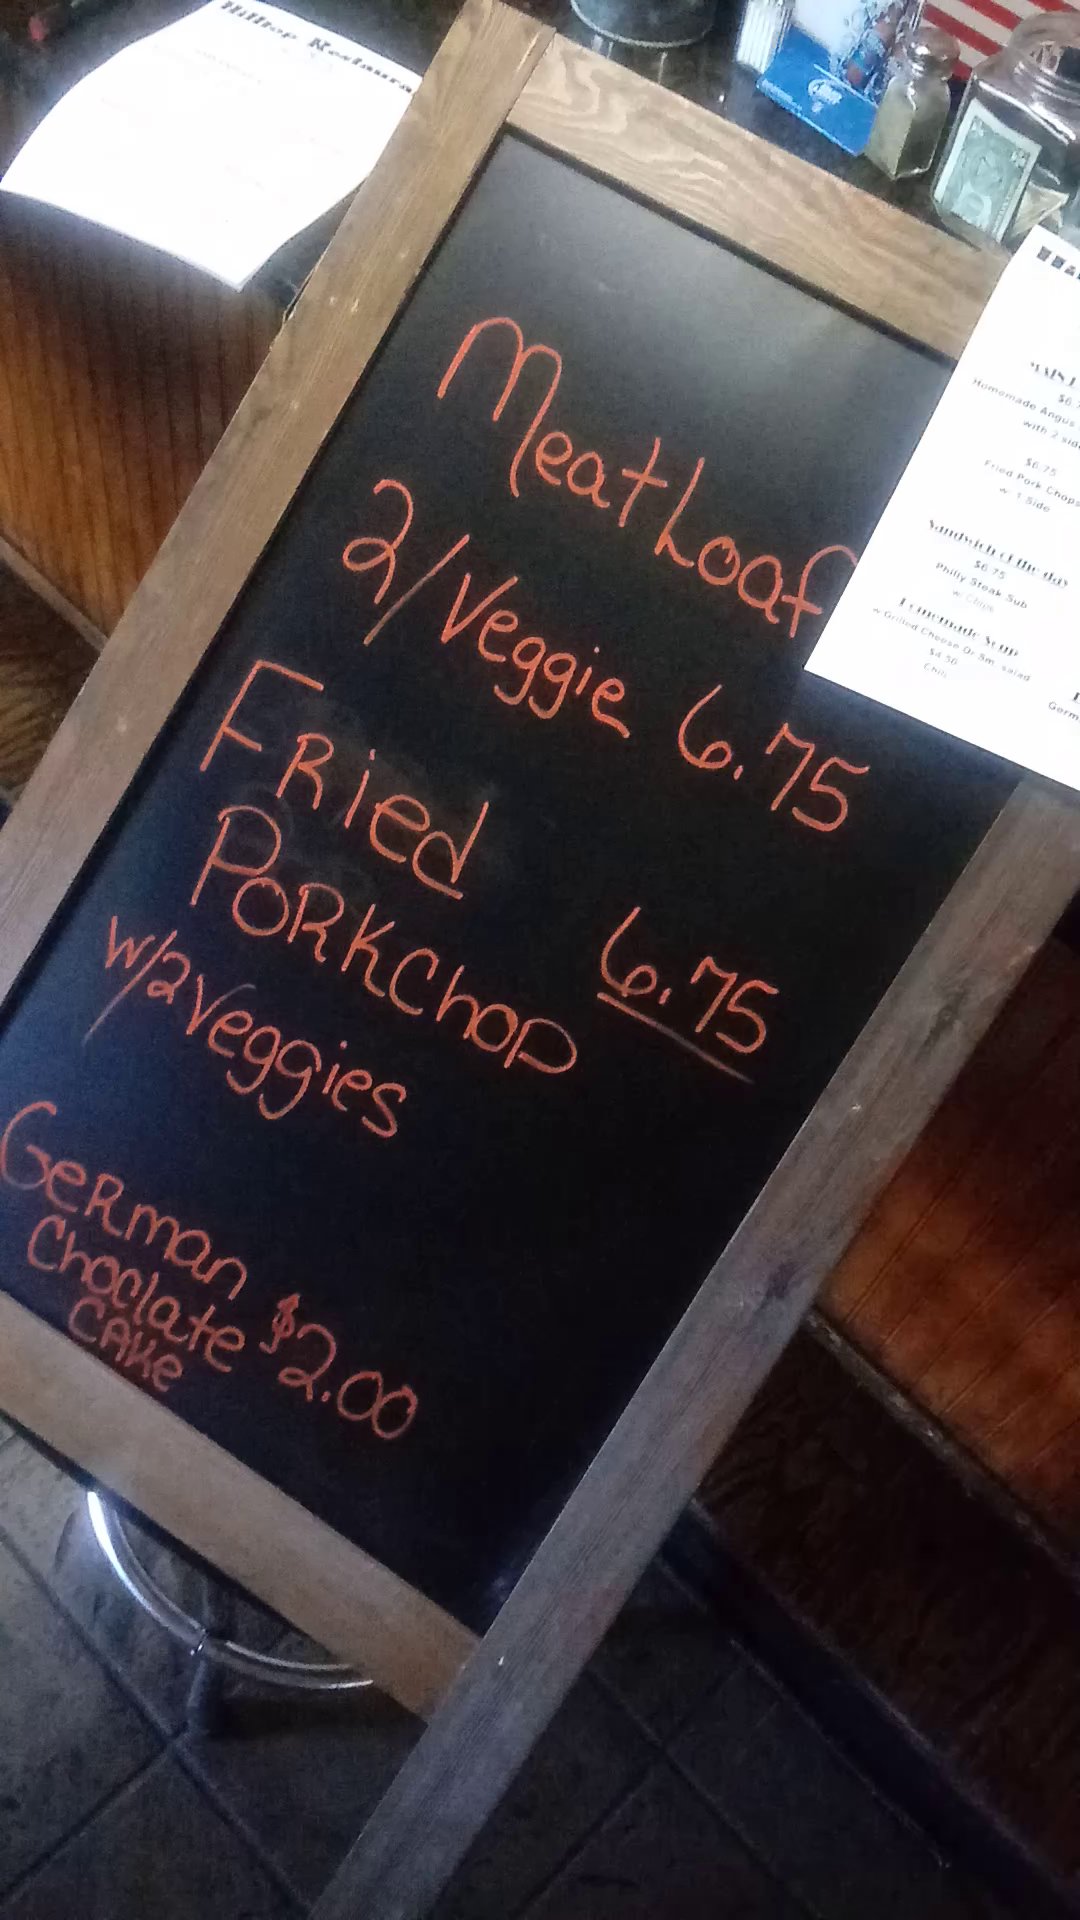 Hilltop Restaura
MeatLoaf
2/Veggie 6.75
Fried
PorkChop 6.75
w/2Veggies
German
Choclate $2.00
Cake
$6.7
Homemade Angus
with 2 side
$6.75
Fried Pork Chops
w/ 1 Side
Sandwich of the day
$6.75
Philly Steak Sub
w/ Chips
Homemade Soup
w Grilled Cheese Or Sm. salad
$4.50
Chili
Germ